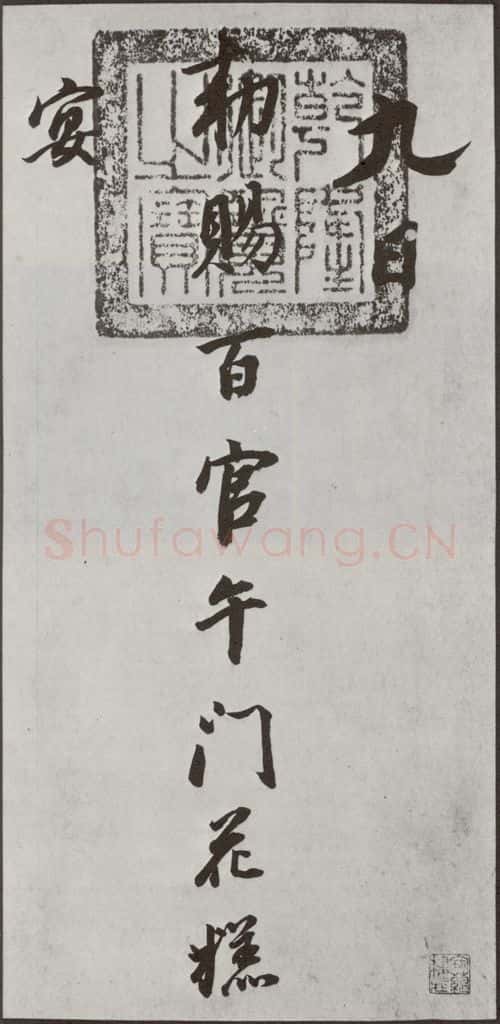 九日
勅賜百官午门花糕
宴
乾隆
御覽
之寶
Shufawang.CN